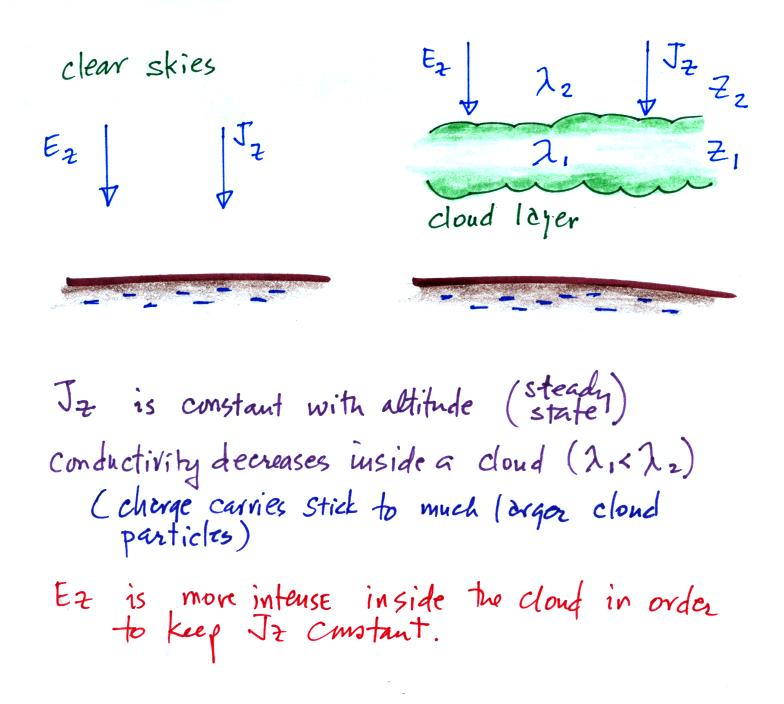 clear skies
Ez
Jz
Ez
λ2
Jz
z2
λ1
z1
cloud layer
Jz is constant with altitude (steady state)
conductivity decreases inside a cloud (λ1<λ2)
(charge carries stick to much larger cloud
particles)
Ez is more intense inside the cloud in order
to keep Jz constant.